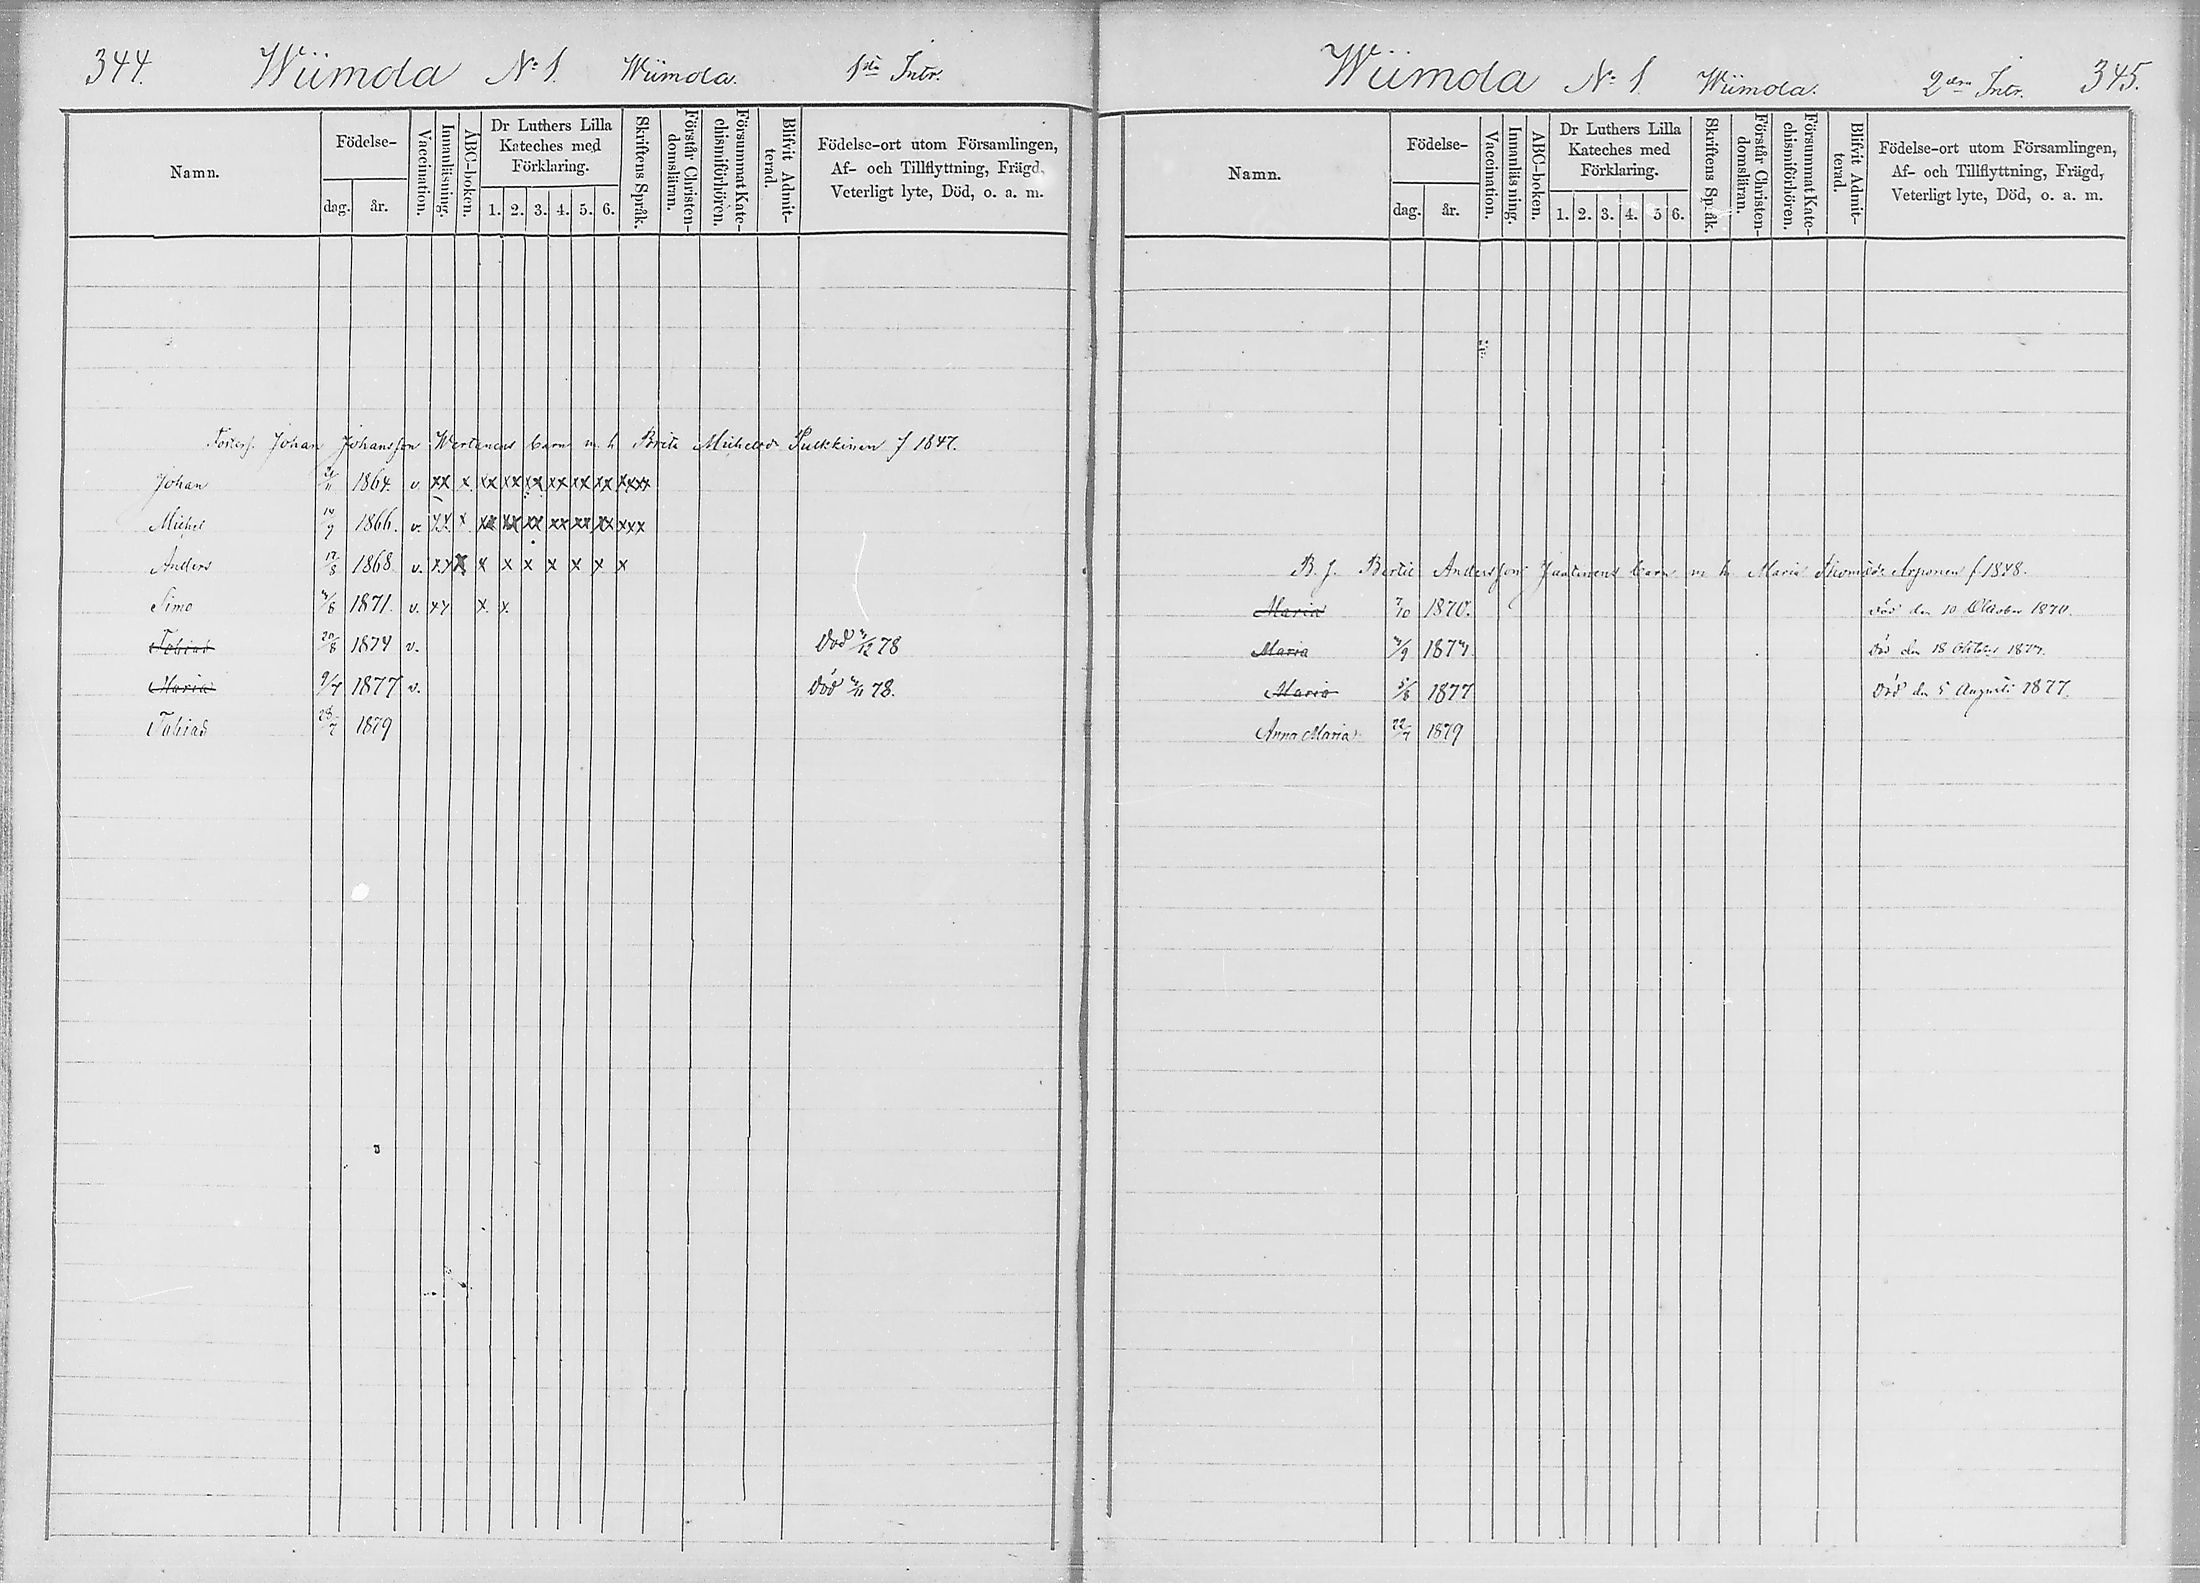 344. Wiimola No 1. Wiimola. 1sta Intr.
Namn.
Födelse-
dag. år.
Vaccination.
Innanläsning.
ABC-boken.
Dr Luthers Lilla Kateches med Förklaring.
1. 2. 3. 4. 5. 6.
Skriftens Språk.
Förstår Christen-domsläran.
Försummat Kate-chismiförhören.
Blifvit Admit-terad.
Födelse-ort utom Församlingen,
Af- och Tillflyttning, Frägd,
Veterligt lyte, Död, o. a. m.
Johan Johansson Wertanens barn m. h. Brita Michelsdr Pulkkinen f 1847.
Johan 1864. v. xx x. xx xx xx xx xx xx xxxx
Michel 1866. v. xx x xx xx xx xx xx xx xxx
Anders 17/8 1868 v. xx x x x x x x x x
Simo 1871. v. xx x. x.
Tobias 20/8 1874 v. Död 78
Maria 9/4 1877 v. Död 78.
Tobias 1879
Wiimola No 1. Wiimola. 2dra Intr. 345.
Namn.
Födelse-
dag. år.
Vaccination.
Innanläsning.
ABC-boken.
Dr Luthers Lilla Kateches med Förklaring.
1. 2. 3. 4. 5 6.
Skriftens Språk.
Förstår Christen-domsläran.
Försummat Kate-chismiförhören.
Blifvit Admit-terad.
Födelse-ort utom Församlingen,
Af- och Tillflyttning, Frägd,
Veterligt lyte, Död, o. a. m.
B. f. Bertil Andersson Jantunens barn m h. Maria Thomasdr Arponen f 1848.
Maria 7/10 1870. död den 10 Oktober 1870.
Maria Död den 18 Oktober
Maria 5/8 1877 Död den 5 Augusti 1877.
Anna Maria 22/7 1879